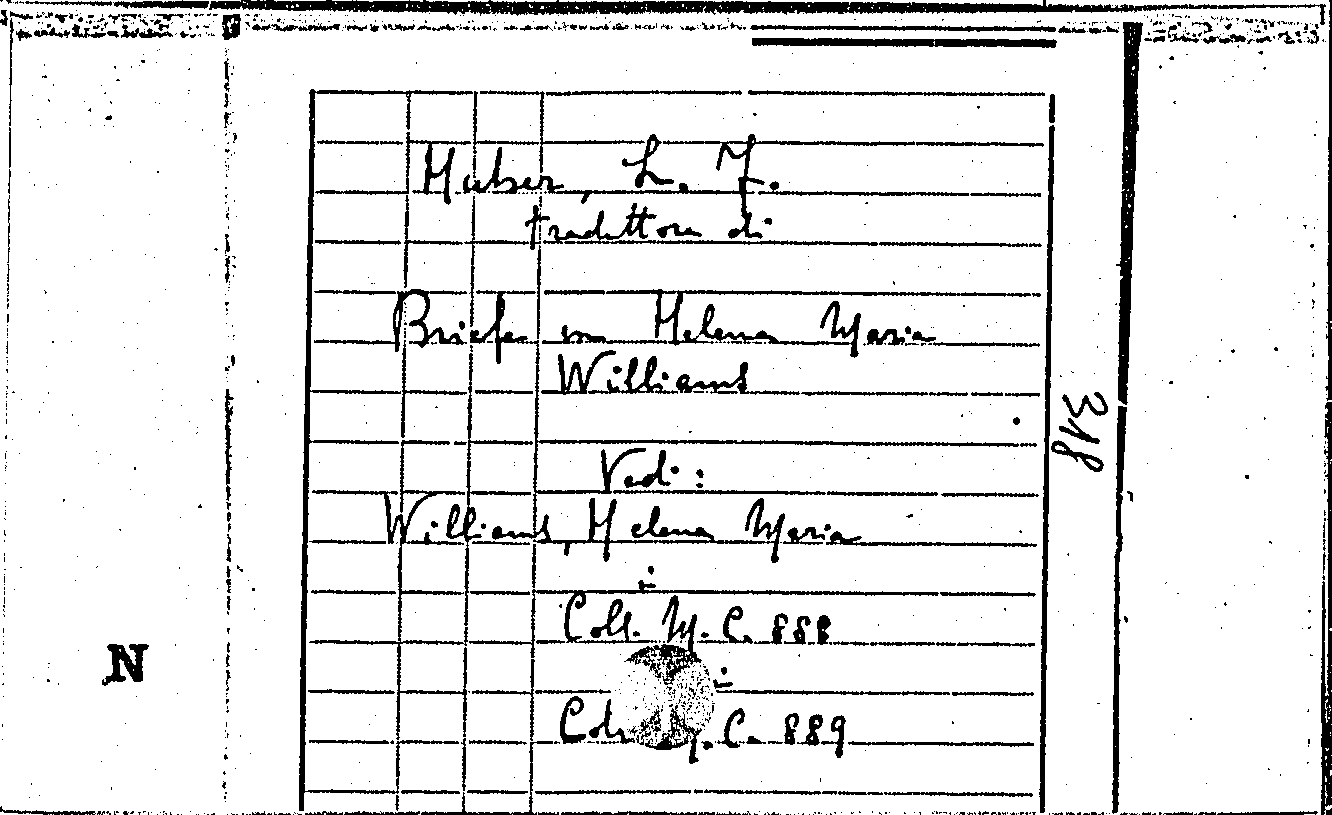 Huber, L. F.
traduttore di
Briefe von Helena Maria
Williams
Vedi:
Williams, Helena Maria
Coll. M. C. 888
C. 889
318
N